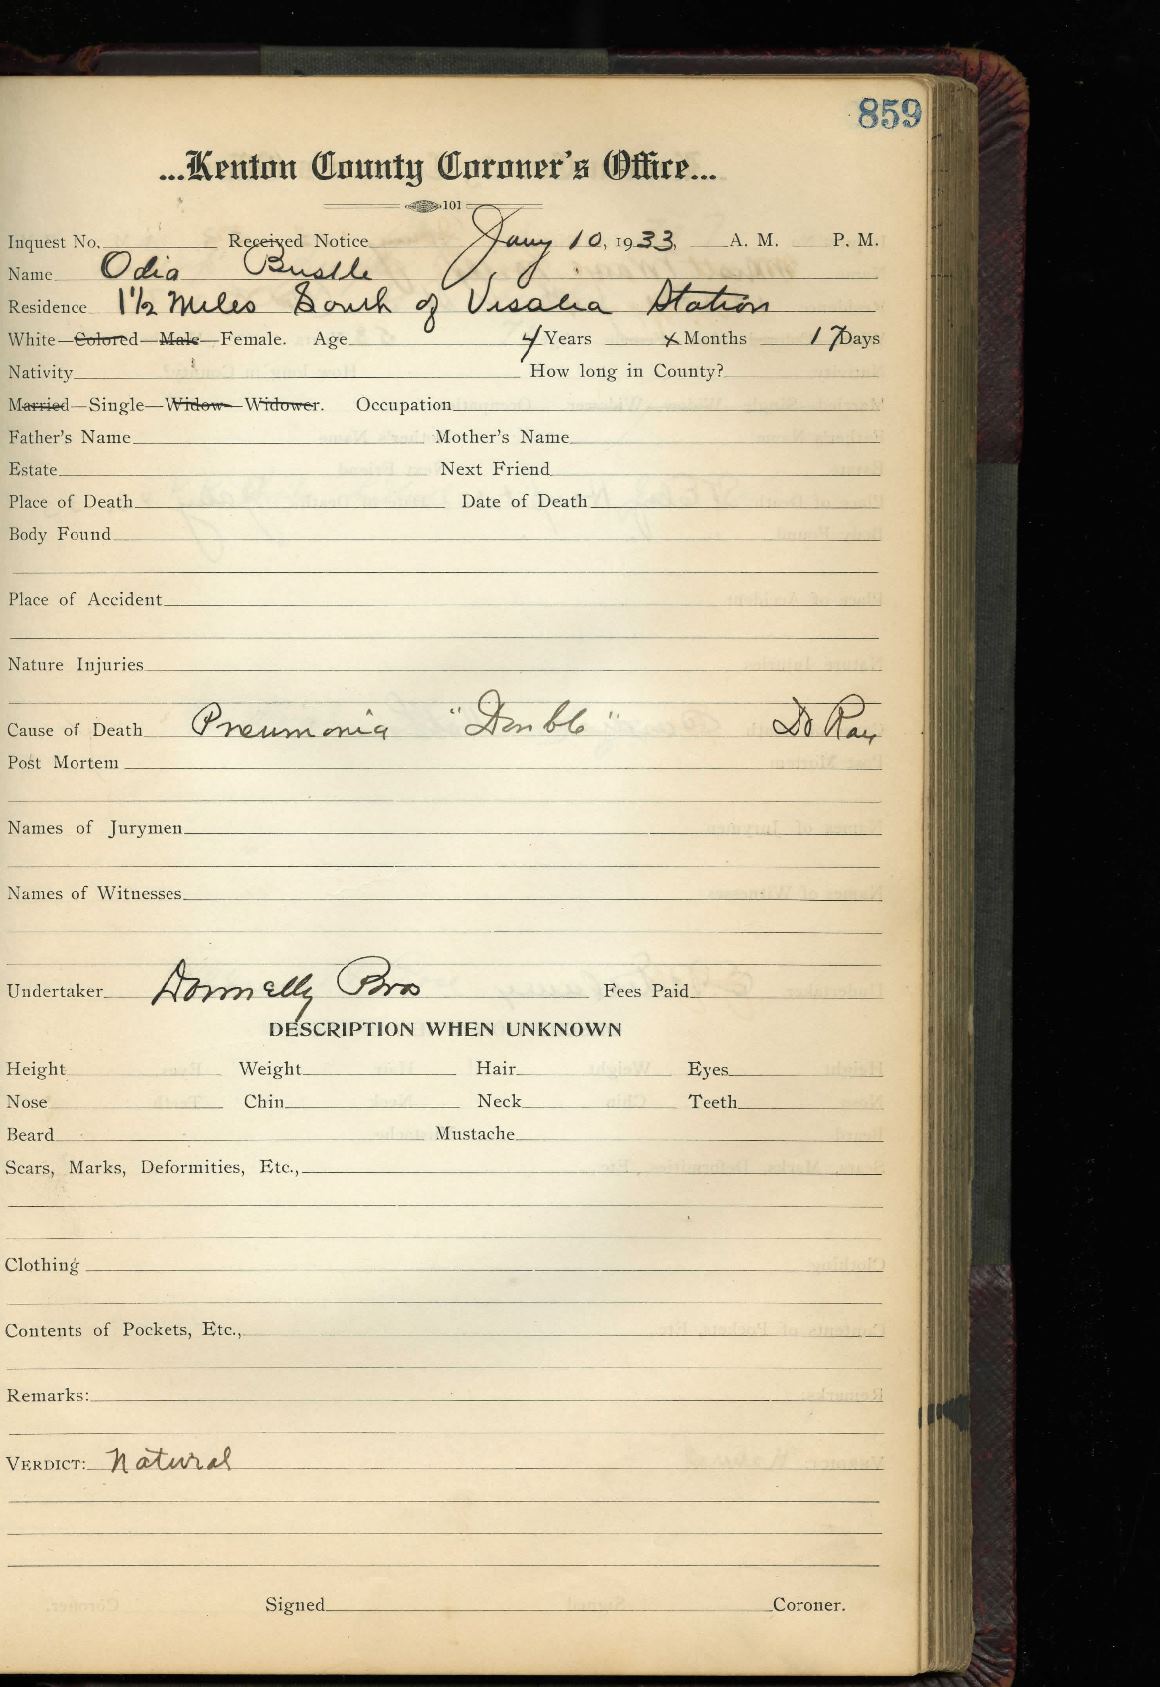 859
...Kenton County Coroner's Office...
101
Inquest No. Received Notice Jany 10, 1933, A. M. P. M.
Name Odia Bustle
Residence 1½ Miles South of Visalia Station
White—Colored—Male—Female. Age 4 Years x Months 17 Days
Nativity How long in County?
Married—Single—Widow—Widower. Occupation
Father's Name Mother's Name
Estate Next Friend
Place of Death Date of Death
Body Found
Place of Accident
Nature Injuries
Cause of Death Pneumonia "Double" Dr Ray
Post Mortem
Names of Jurymen
Names of Witnesses
Undertaker Donnelly Bros Fees Paid
DESCRIPTION WHEN UNKNOWN
Height Weight Hair Eyes
Nose Chin Neck Teeth
Beard Mustache
Scars, Marks, Deformities, Etc.,
Clothing
Contents of Pockets, Etc.,
Remarks:
VERDICT: Natural
Signed Coroner.